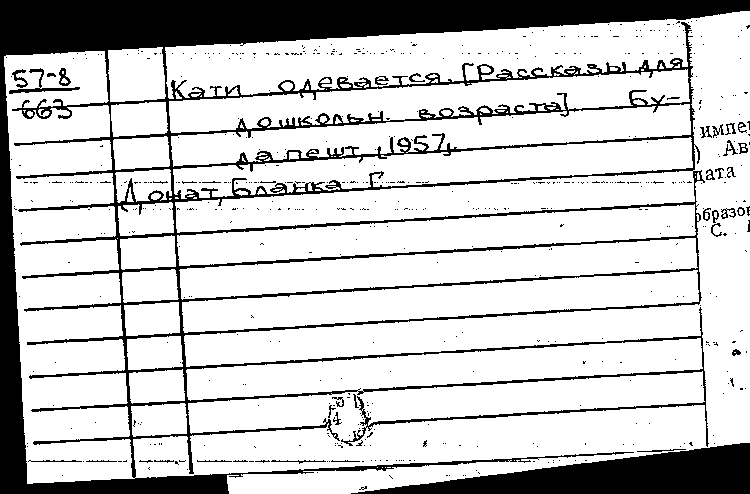 57-8
663
Кати одевается. [Рассказы для
дошкольн. возраста]. Бу-
дапешт, [1957].
Донат, Бланка Г
импер
) Ав
дата
образов
С.